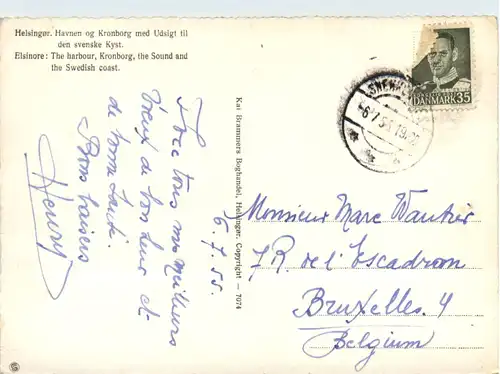 Helsingør. Havnen og Kronborg med Udsigt til
den svenske Kyst.
Elsinore: The harbour, Kronborg, the Sound and
the Swedish coast.
DANMARK 35
6.7.55.
tous mes meilleurs
Vœux de bonheur et
de bonne santé.
Bons baisers
Henry
Kai Brammers Boghandel, Helsingør. Copyright — 7074
Monsieur Marc Wautier
7 R. de l'Escadron
Bruxelles. 4
Belgium